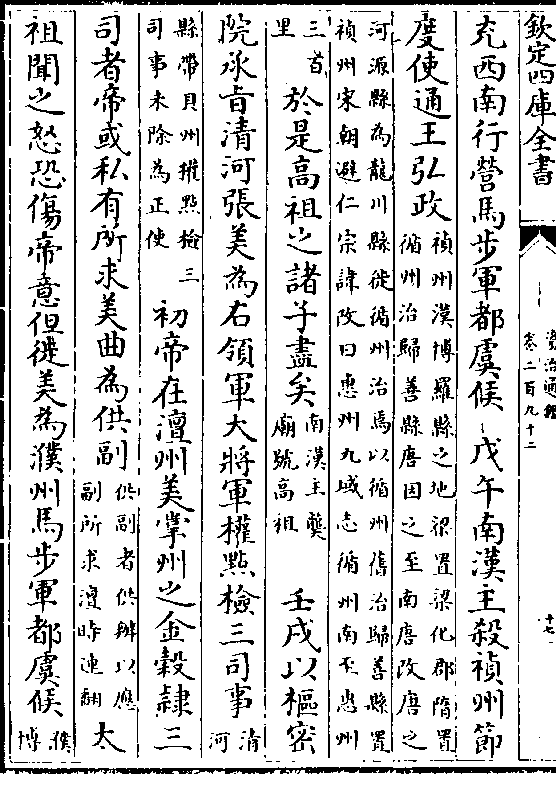 欽定四庫全書
資治通鑑
卷二百九十二
十七
充西南行營馬步軍都虞候 戊午南漢主殺禎州節
度使通王弘政
禎州漢博羅縣之地梁置梁化郡隋置
循州治歸善縣唐因之至南唐改唐之
河源縣為龍川縣徙循州治焉以循州舊治歸善縣置
禎州宋朝避仁宗諱改曰惠州九域志循州南至惠州
三百
里
於是高祖之諸子盡矣
南漢主龑
廟號高祖
壬戌以樞密
院承旨清河張美為右領軍大將軍權點檢三司事
清
河
縣帶貝州權點檢三
司事未除為正使
初帝在澶州美掌州之金穀隷三
司者帝或私有所求美曲為供副
供副者供辦以應
副所求澶時連翻
太
祖聞之怒恐傷帝意但徙美為濮州馬步軍都虞候
濮
博